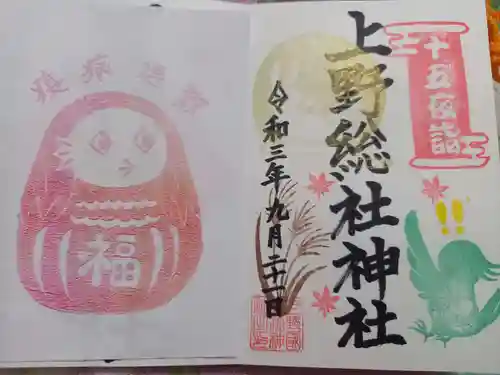 十五夜詣
上野総社神社
令和三年九月二十一日
疫病
福